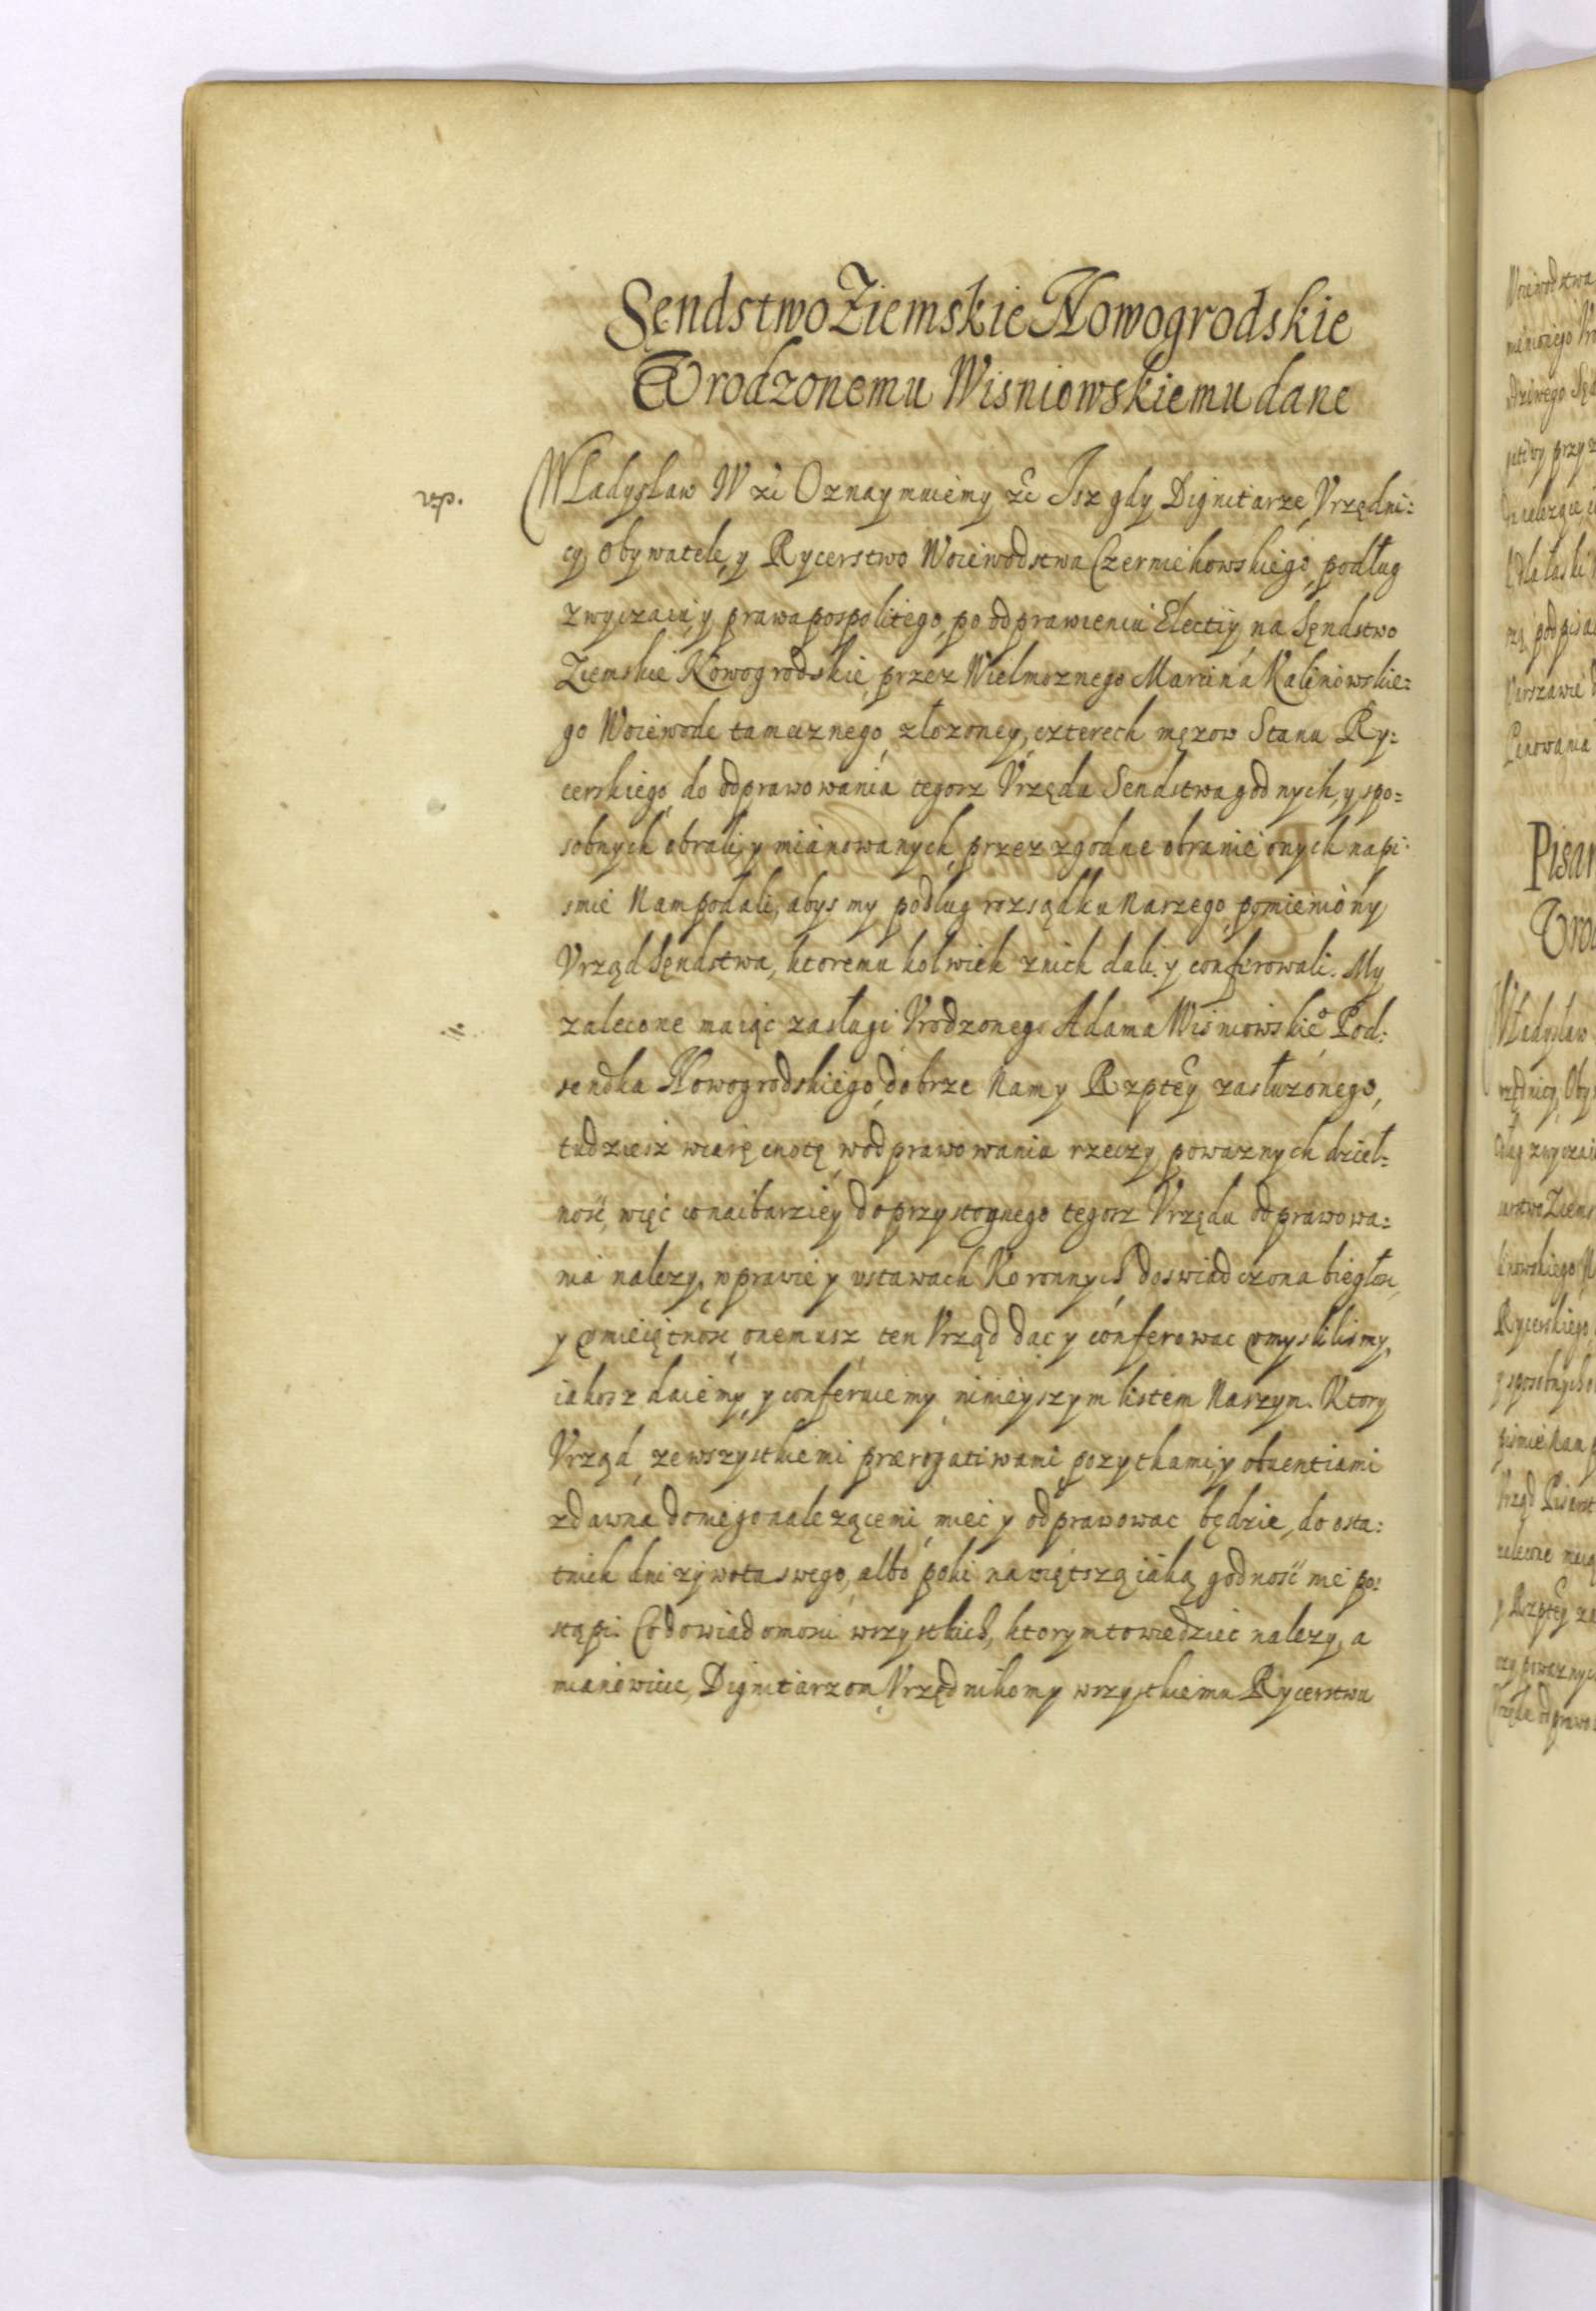 Sęndstwo Ziemskie Nowogrodskie
Vrodzonemu Wisniowskiemu dane
Władysław IV etc Oznaymuiemy etc Isz gdy Dignitarze, Vrzędni:
cy, Obywatele, y Rycerstwo Woiewodstwa Czerniehowskiego, podług
zwyczaiu, y prawa pospolitego, po odprawieniu Electiy, na Sęndstwo
Ziemskie Nowogrodskie, przez Wielmoznego Marcina Kalinowskie:
go Woiewode tamecznego, złozoney, czterech męzow Stanu Ry:
cerskiego, do odprawowania tegosz Vrzędu Sendstwa godnych, y spo:
sobnych obrali, y mianowanych, przez zgodne obranie onych na pi:
smie Nam podali, abysmy podług rozsądku Naszego, pomieniony
Vrząd Sęndstwa, ktoremu kolwiek znich dali y conferowali. My
zalecone maiąc zasługi Vrodzonego Adama Wisniowskieo Pod:
sendka Nowogrodskiego, dobrze Nam y Rzptey zasłuzonego,
tudziesz wiarę cnotę, w odprawowania rzeczy powaznych dziel:
ność, więc co naibarziey do przystoynego tegosz Vrzędu odprawowa:
nia nalezy, w prawie y ustawach Koronnych, doswiadczona biegłosc,
y umieiętnosc, onemusz ten Vrząd dac y conferowac umyslilismy,
iakosz daiemy, y conferuiemy, ninieyszym listem Naszym. Ktory
Vrząd, ze wszystkiemi prærogatiwami, pozytkami, y obuentiami
zdawna do niego nalezącemi, miec y odprawowac będzie, do osta:
tnich dni zywota swego, albo poki na więtszą iaką godność nie po:
stąpi. Co do wiadomosci wszystkich, ktorym to wiedziec nalezy, a
mianowicie, Dignitarzom, Vrzędnikom y wszystkiemu Rycerstwu